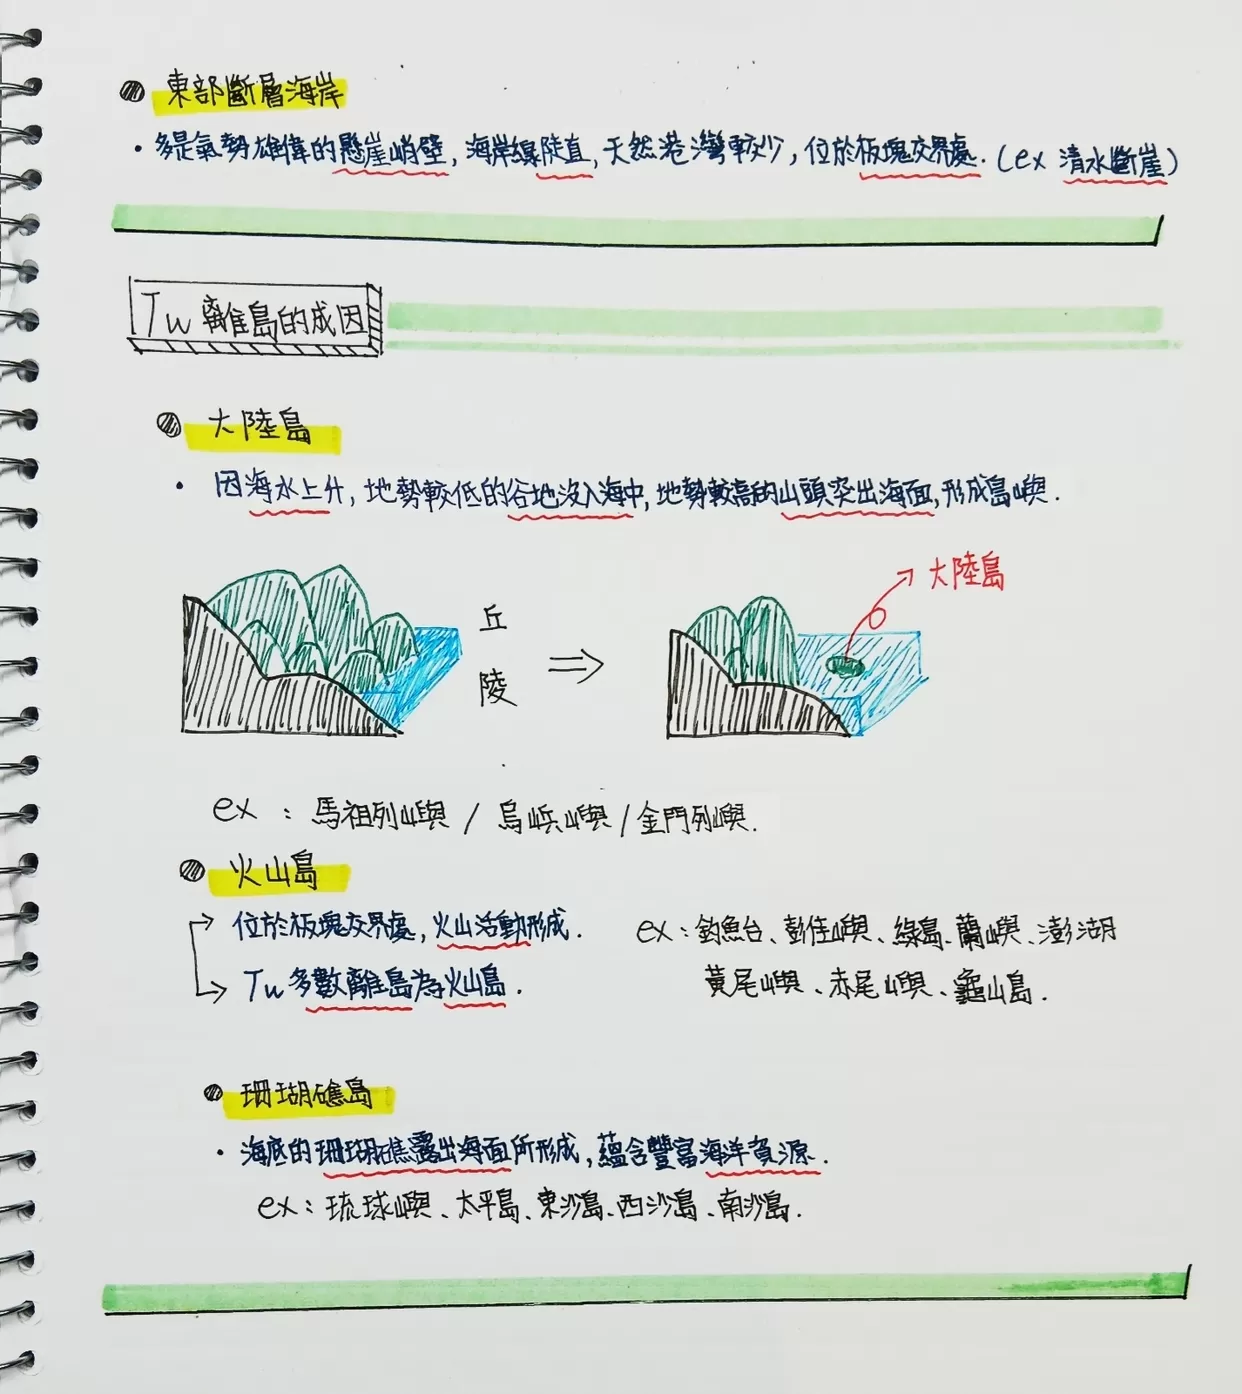 東部斷層海岸
・多是氣勢雄偉的懸崖峭壁，海岸線陡直，天然港灣較少，位於板塊交界處.（ex 清水斷崖）
Tw 離島的成因
大陸島
・因海水上升，地勢較低的谷地沒入海中，地勢較高的山頭突出海面，形成島嶼.
大陸島
丘陵
ex：馬祖列嶼 / 烏坵嶼 / 金門列嶼.
火山島
位於板塊交界處，火山活動形成.
Tw 多數離島為火山島.
ex：釣魚台、彭佳嶼、綠島、蘭嶼、澎湖
黃尾嶼、赤尾嶼、龜山島.
珊瑚礁島
・海底的珊瑚礁露出海面所形成，蘊含豐富海洋資源.
ex：琉球嶼、太平島、東沙島、西沙島、南沙島.